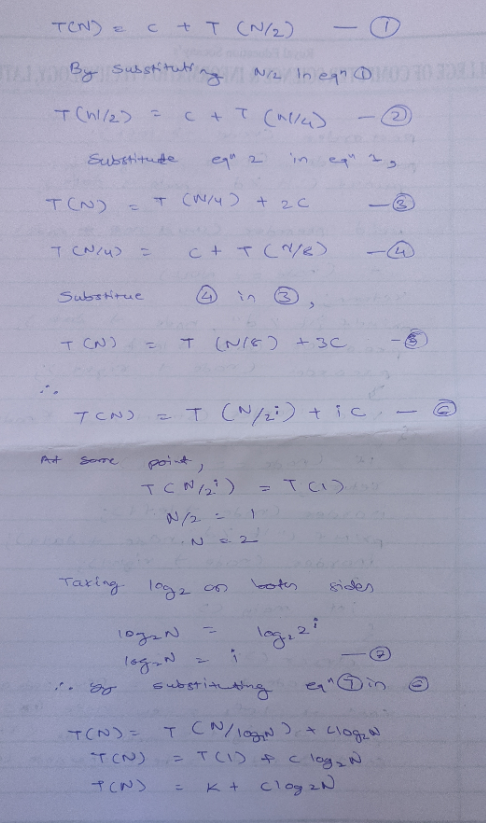 T(N) = c + T (N/2) — ①
By Substituting N/2 in eqn ①
T(n/2) = c + T (n/4) — ②
Substitude eqn 2 in eqn 1,
T(N) = T (N/4) + 2C — ③
T(N/4) = c + T (N/8) — ④
Substitue ④ in ③,
T(N) = T (N/8) + 3C — ⑤
∴
T(N) = T (N/2i) + i C — ⑥
At some point,
T(N/2i) = T(1)
N/2 = 1
N = 2
Taking log2 on both sides
log2N = log2 2i
log2N = i — ⑦
∴ By substituting eqn ⑦ in ⑥
T(N) = T (N/log2N) + clog2N
T(N) = T(1) + c log2N
T(N) = K + clog2N